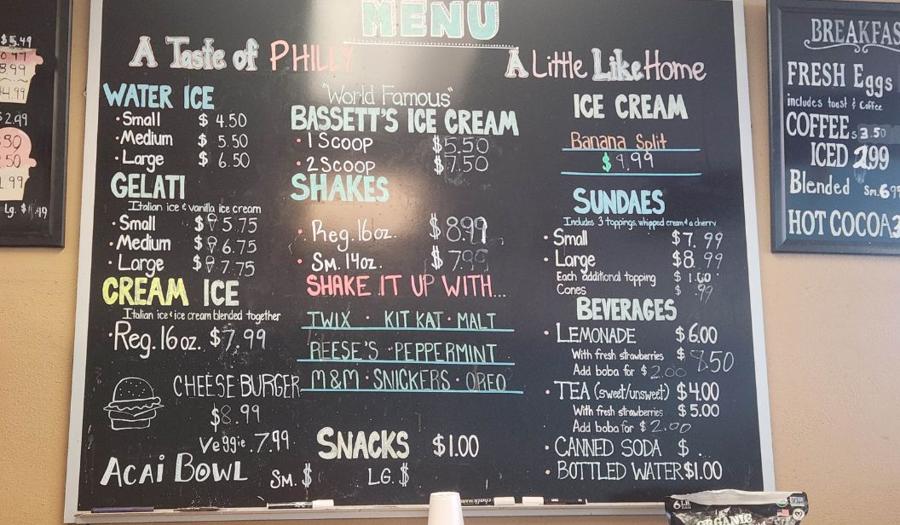 MENU
A Taste of PHILLY
A Little Like Home
WATER ICE
· Small $4.50
· Medium $5.50
· Large $6.50
GELATI
Italian ice & vanilla ice cream
· Small $5.75
· Medium $6.75
· Large $7.75
CREAM ICE
Italian ice & ice cream blended together
· Reg. 16 oz. $7.99
CHEESE BURGER
$8.99
Veggie 7.99
ACAI BOWL Sm. $ LG. $
"World Famous"
BASSETT'S ICE CREAM
· 1 Scoop $5.50
· 2 Scoop $7.50
SHAKES
· Reg. 16oz. $8.99
· Sm. 14oz. $7.99
SHAKE IT UP WITH...
TWIX · KIT KAT · MALT
REESE'S · PEPPERMINT
M&M · SNICKERS · OREO
SNACKS $1.00
ICE CREAM
Banana Split
$9.99
SUNDAES
Includes 3 toppings, whipped cream & a cherry
· Small $7.99
· Large $8.99
Each additional topping $1.00
Cones $.99
BEVERAGES
· LEMONADE $6.00
With fresh strawberries $8.50
Add boba for $2.00
· TEA (sweet/unsweet) $4.00
With fresh strawberries $5.00
Add boba for $2.00
· CANNED SODA $.
· BOTTLED WATER $1.00
$5.49
8.99
$4.99
$2.99
.50
1.99
Lg.
BREAKFAS
FRESH Eggs
includes toast & Coffee
COFFEE $3.50
ICED 2.99
Blended Sm. 6.9
HOT COCOA 3
ORGANIC